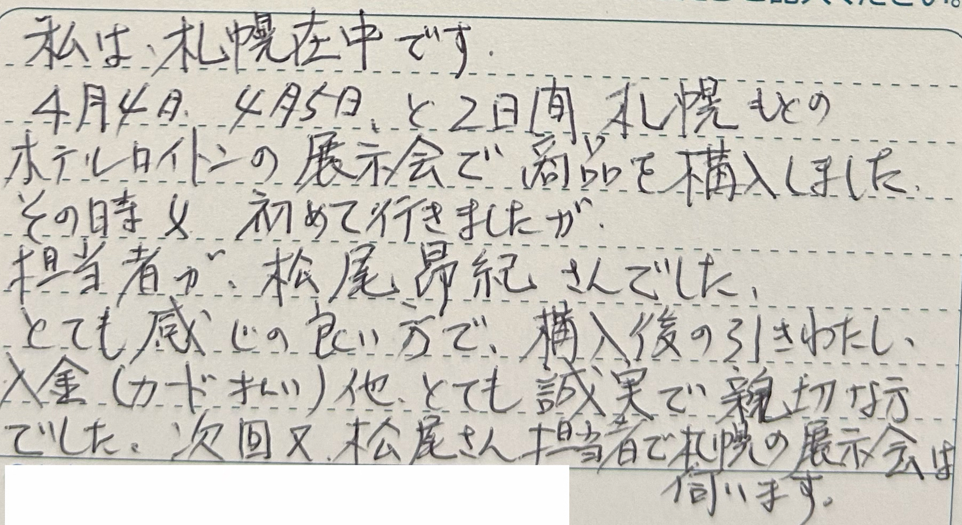 ご記入ください。
私は、札幌在中です.
4月4日、4月5日、と2日間 札幌もとの
ホテルロイトンの展示会で商品を構入しました.
その時は 初めて行きましたが.
担当者が、松尾昂紀さんでした、
とても感じの良い方で、構入後の引きわたし、
入金(カード払い)他、とても誠実で親切な方
でした。次回又、松尾さん担当者で札幌の展示会は
伺います。